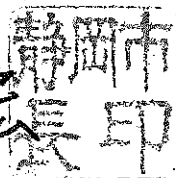 静岡市
長印